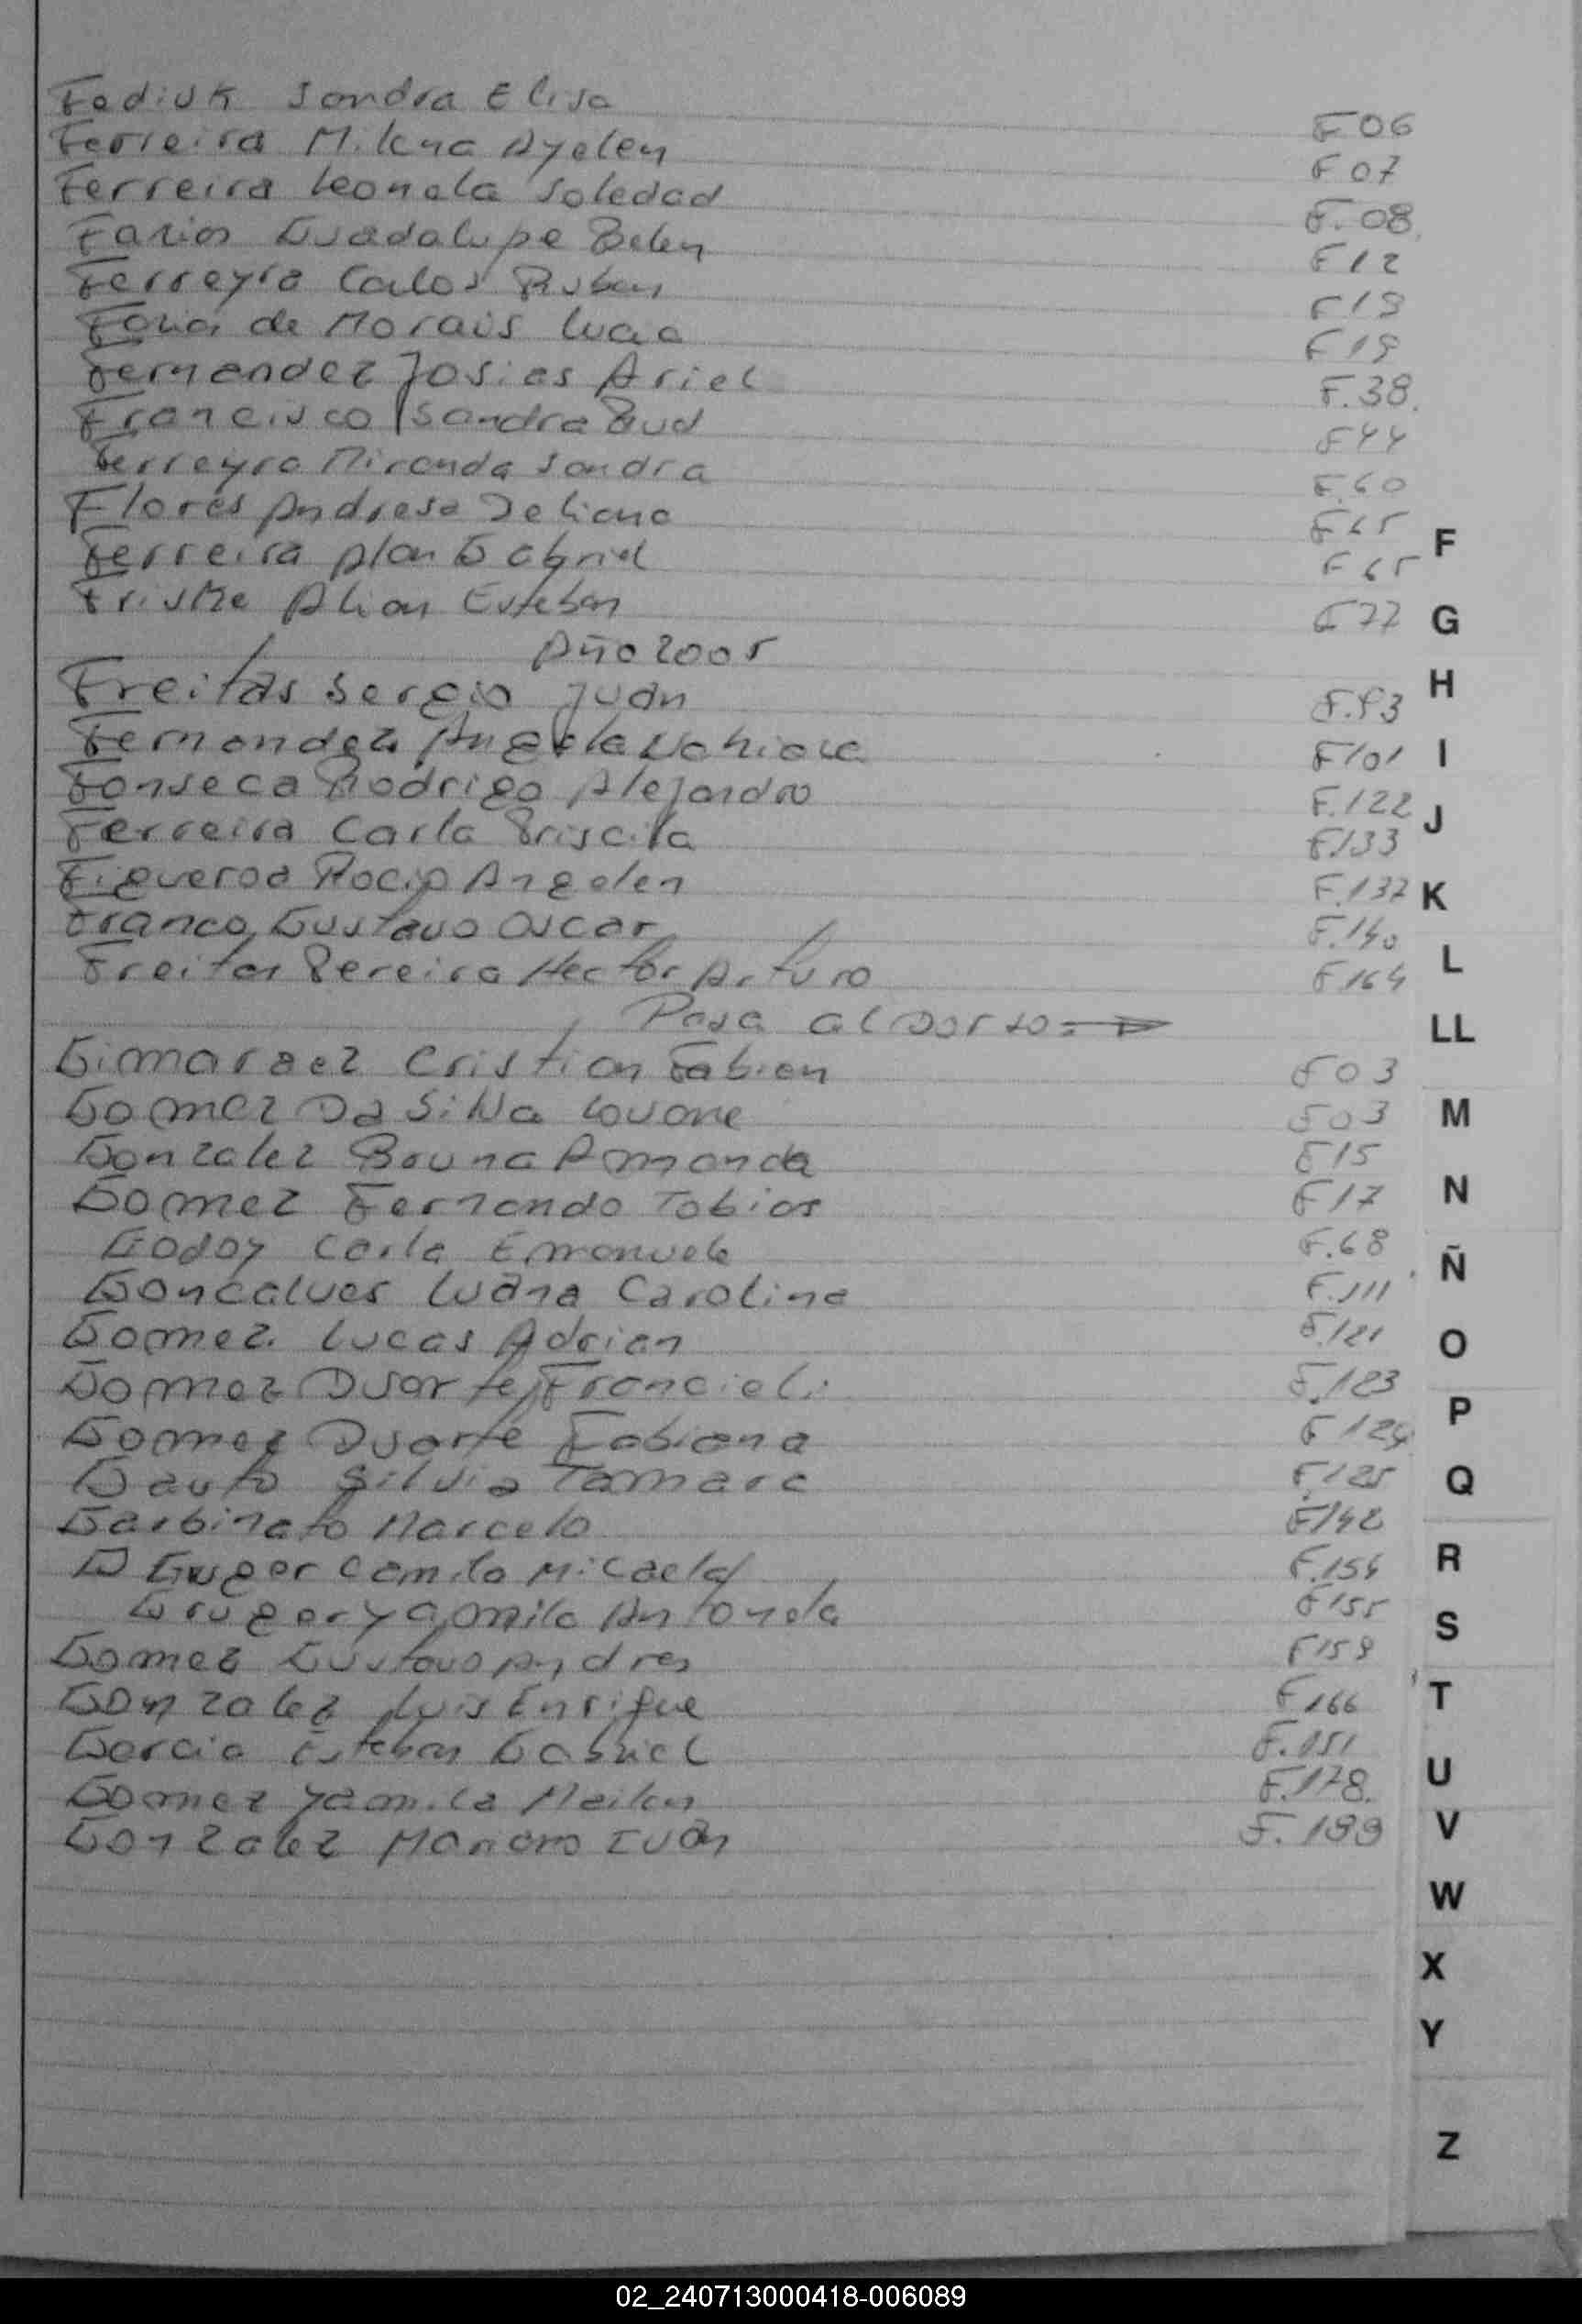 Fediuk Sandra Elisa F 06
Ferreira Milena Ayelen F 07
Ferreira Leonela Soledad F. 08
Farias Guadalupe Belen F 12
Ferreyra Carlos Ruben F 18
Faria de Morais Luca F 19
Fernandez Josias Ariel F. 38.
Francisco Sandra F 44
Ferreyra Miranda Sandra F. 60
Flores Andresa Deliana F 65
Ferreira Alan Gabriel F 65
Alian Esteban F 77
Año 2005
Freitas Sergio Juan F. 93
Fernandez Angela F 101
Fonseca Rodrigo Alejandro F. 122
Ferreira Carla Priscila F. 133
Figueroa Rocio Angelen F. 137
Franco Gustavo Oscar F. 140
Freitas Pereira Hector Arturo F 164
Pasa al Dorso =
Gimaraez Cristian Fabian F 03
Gomez Da Silva F 03
Gonzalez Bruna Ammanda F 15
Gomez Fernando Tobias F 17
Godoy Carla Emanuele F. 68
Goncalves Luana Carolina F. 111
Gomez Lucas Adrian F. 121
Gomez Duarte Francieli F. 123
Gomez Duarte Fabiana F 124
Gauto Silvia Tamara F. 125
Garbinato Marcelo F 142
G Gruger Camila Micaela F. 154
Gruger Yamila Antonela F 155
Gomez Gustavo Andres F 159
Gonzalez Luis Enrique F 166
Garcia Esteban Gabriel F. 151
Gomez Yamila Mailen F. 178.
Gonzalez Mariano Ivan F. 199
F
G
H
I
J
K
L
LL
M
N
Ñ
O
P
Q
R
S
T
U
V
W
X
Y
Z
02_240713000418-006089